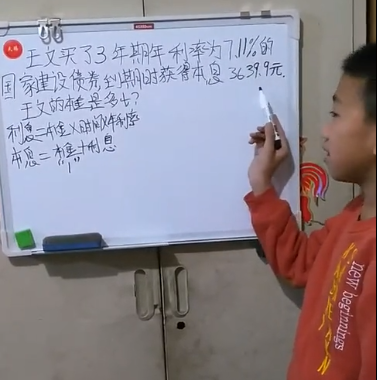 王文买了3年期年利率为7.11%的
国家建设债券到期时获得本息3639.9元.
王文的本金是多少?
利息=本金×时间×年利率
本息=本金+利息
"1"
new beginnings